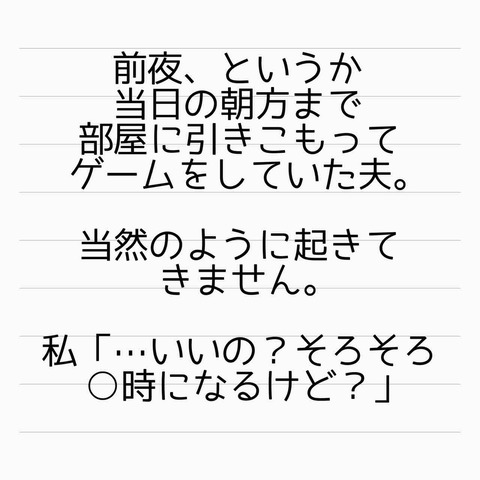 前夜、というか
当日の朝方まで
部屋に引きこもって
ゲームをしていた夫。
当然のように起きて
きません。
私「…いいの？そろそろ
○時になるけど？」